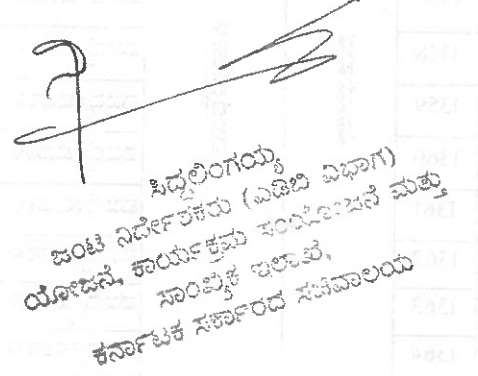 ಸಿದ್ದಲಿಂಗಯ್ಯ
ಜಂಟಿ ನಿರ್ದೇಶಕರು (ಎಡಿಬಿ ವಿಭಾಗ)
ಯೋಜನೆ, ಕಾರ್ಯಕ್ರಮ ಸಂಯೋಜನೆ ಮತ್ತು
ಸಾಂಖ್ಯಿಕ ಇಲಾಖೆ,
ಕರ್ನಾಟಕ ಸರ್ಕಾರದ ಸಚಿವಾಲಯ